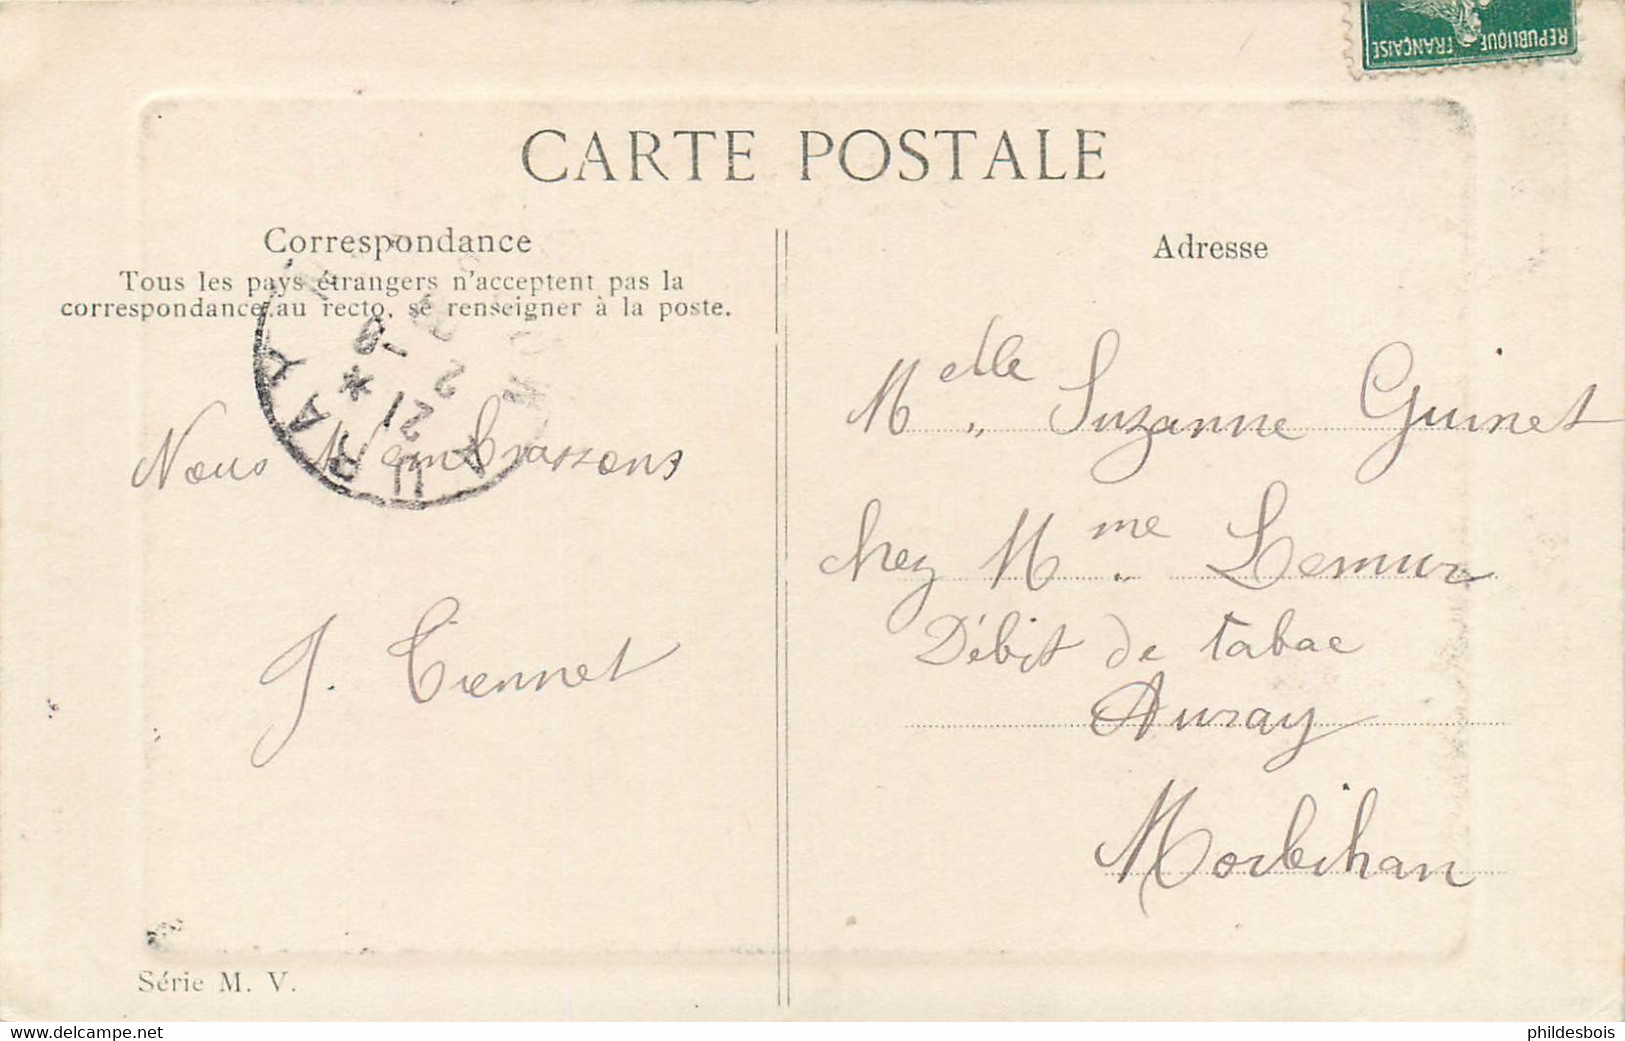 REPUBLIQUE FRANÇAISE
CARTE POSTALE
Correspondance
Tous les pays étrangers n'acceptent pas la
correspondance au recto, se renseigner à la poste.
AURAY
21
2
Nous t'embrassons
J.
Série M. V.
Adresse
Melle Suzanne Guinet
chez Mme Lemur
Débit de tabac
Auray
Morbihan
www.delcampe.net
phildesbois